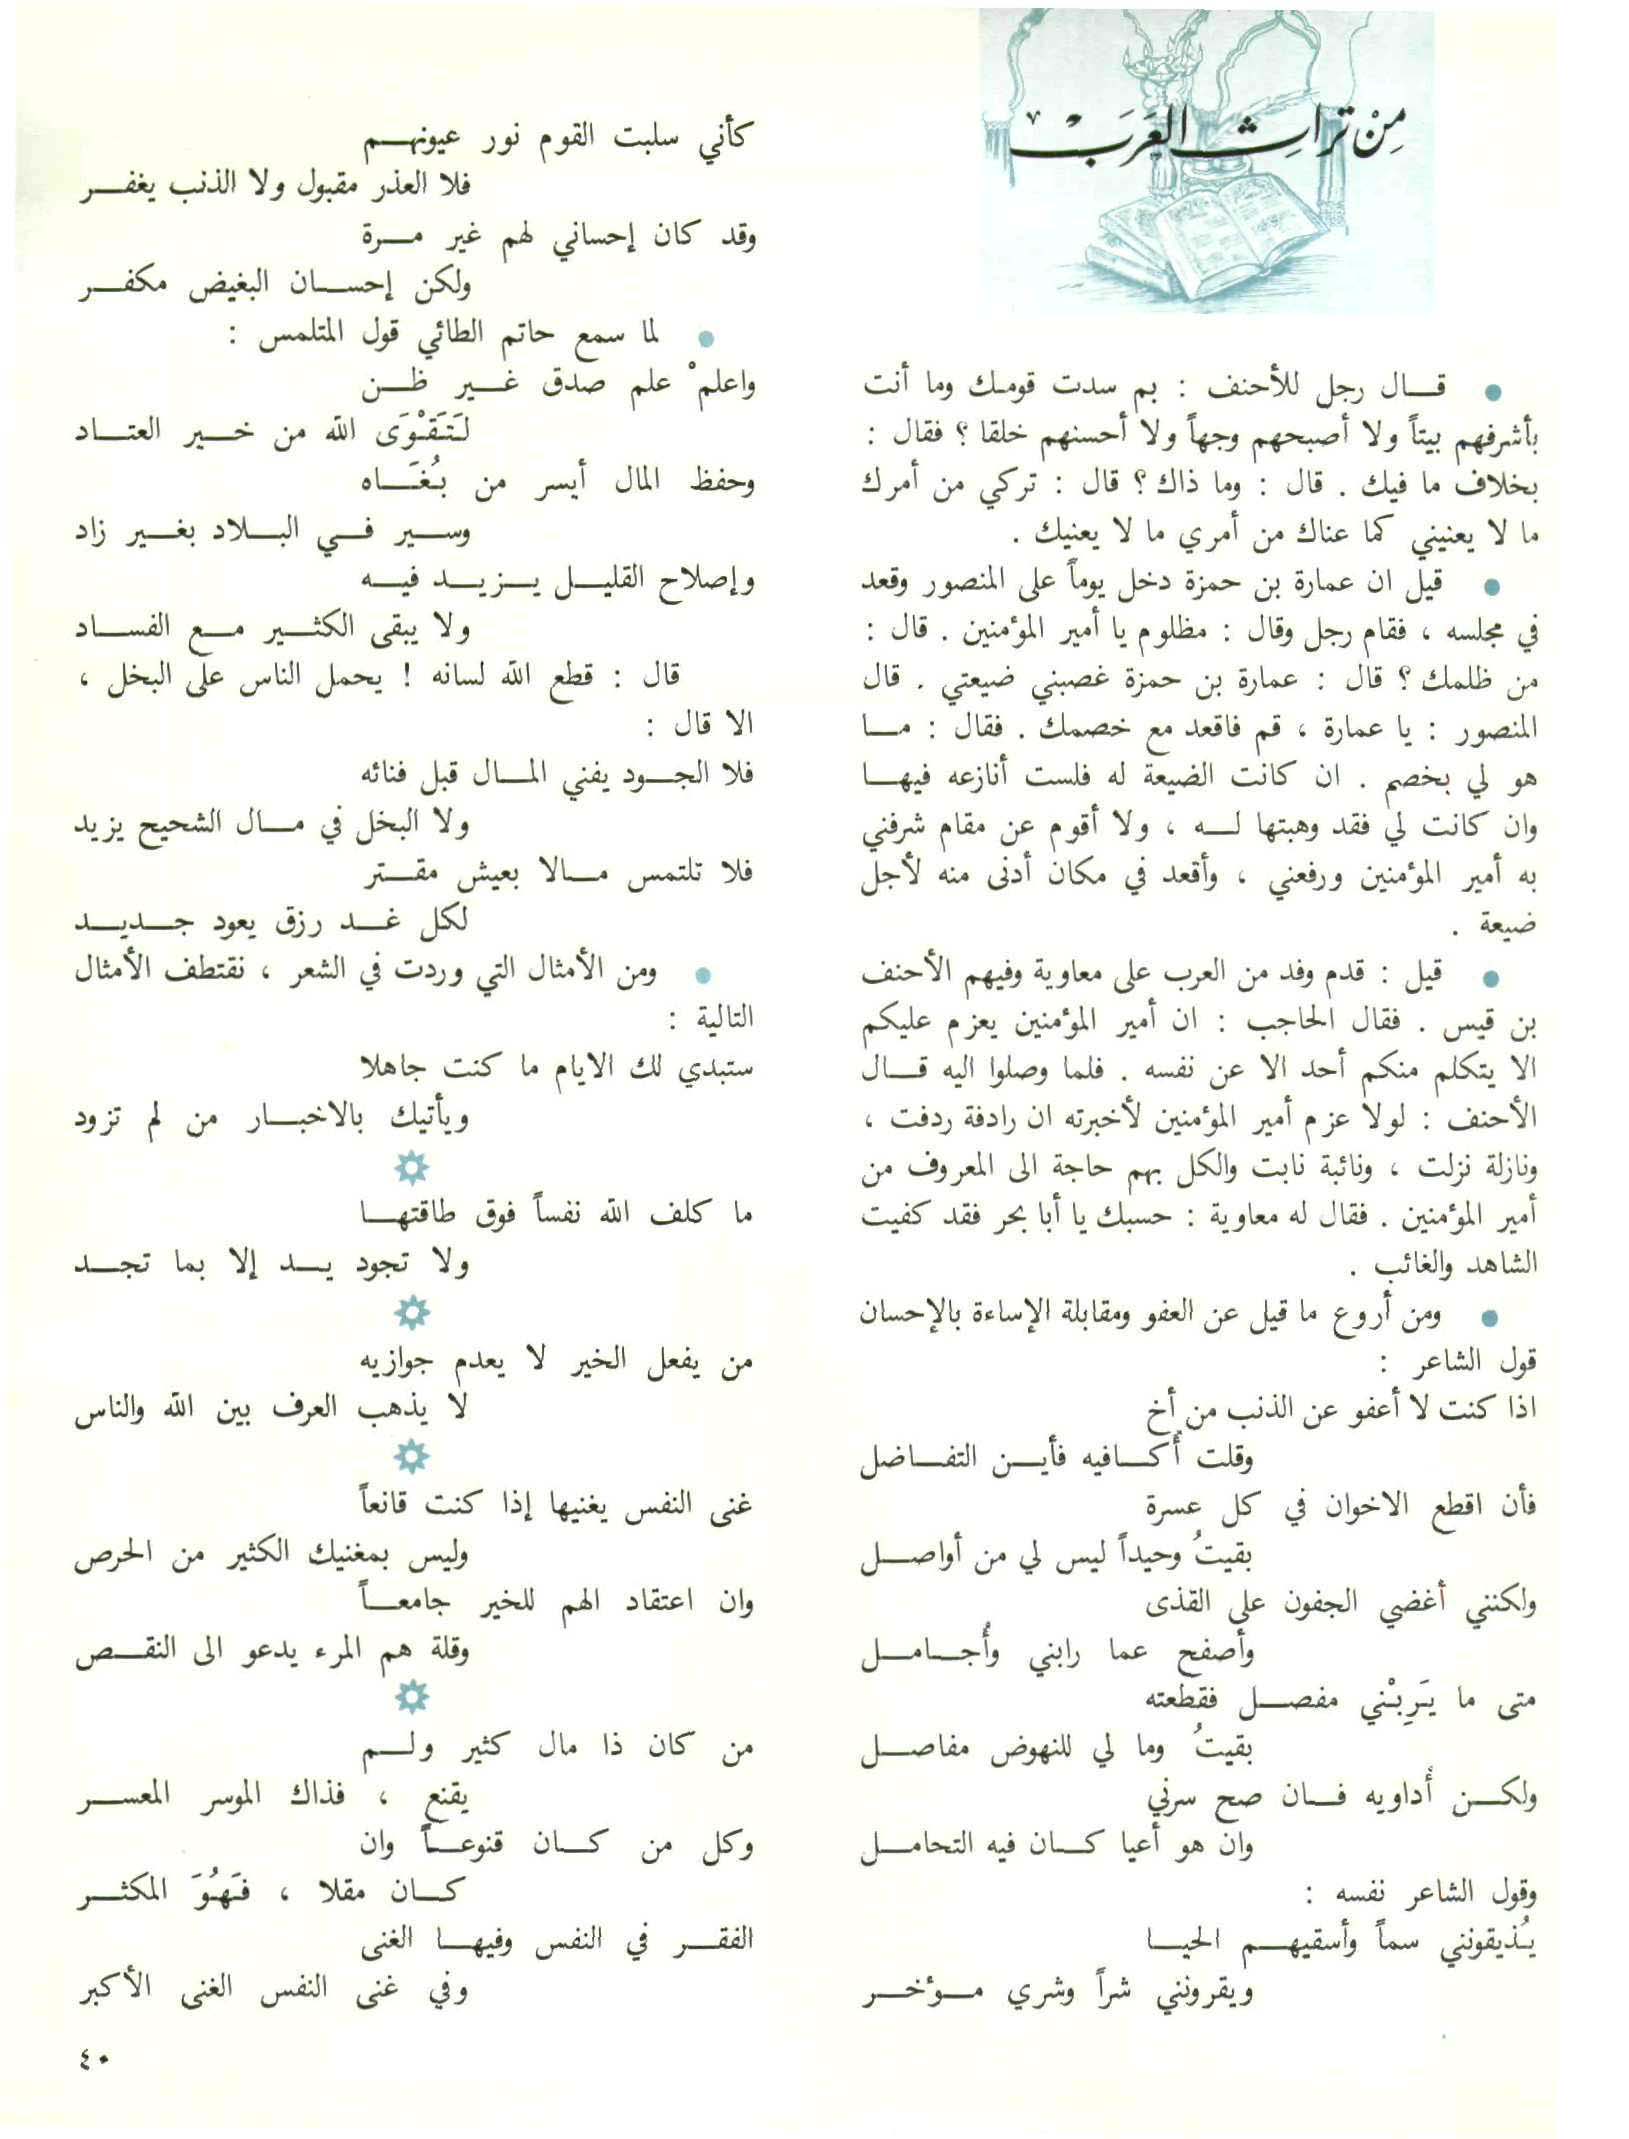 مِنْ تراثِ العَرَب
• قال رجل للأحنف : بم سدت قومك وما أنت
بأشرفهم بيتاً ولا أصبحهم وجهاً ولا أحسنهم خلقا ؟ فقال :
بخلاف ما فيك . قال : وما ذاك ؟ قال : تركي من أمرك
ما لا يعنيني كما عناك من أمري ما لا يعنيك .
• قيل ان عمارة بن حمزة دخل يوماً على المنصور وقعد
في مجلسه ، فقام رجل وقال : مظلوم يا أمير المؤمنين . قال :
من ظلمك ؟ قال : عمارة بن حمزة غصبني ضيعتي . قال
المنصور : يا عمارة ، قم فاقعد مع خصمك . فقال : ما
هو لي بخصم . ان كانت الضيعة له فلست أنازعه فيها
وان كانت لي فقد وهبتها له ، ولا أقوم عن مقام شرفني
به أمير المؤمنين ورفعني ، وأقعد في مكان أدنى منه لأجل
ضيعة .
• قيل : قدم وفد من العرب على معاوية وفيهم الأحنف
بن قيس . فقال الحاجب : ان أمير المؤمنين يعزم عليكم
الا يتكلم منكم أحد الا عن نفسه . فلما وصلوا اليه قال
الأحنف : لولا عزم أمير المؤمنين لأخبرته ان رادفة ردفت ،
ونازلة نزلت ، ونائبة نابت والكل بهم حاجة الى المعروف من
أمير المؤمنين . فقال له معاوية : حسبك يا أبا بحر فقد كفيت
الشاهد والغائب .
• ومن أروع ما قيل عن العفو ومقابلة الإساءة بالإحسان
قول الشاعر :
اذا كنت لا أعفو عن الذنب من أخ
وقلت أُكافيه فأين التفاضل
فأن اقطع الاخوان في كل عسرة
بقيتُ وحيداً ليس لي من أواصل
ولكنني أغضي الجفون على القذى
وأصفح عما رابني وأُجامل
متى ما يَرِبْني مفصل فقطعته
بقيتُ وما لي للنهوض مفاصل
ولكن أُداويه فان صح سرني
وان هو أعيا كان فيه التحامل
وقول الشاعر نفسه :
يُذيقونني سماً وأسقيهم الحيا
ويقرونني شراً وشري مؤخر
كأني سلبت القوم نور عيونهم
فلا العذر مقبول ولا الذنب يغفر
وقد كان إحساني لهم غير مرة
ولكن إحسان البغيض مكفر
• لما سمع حاتم الطائي قول المتلمس :
واعلمْ علم صدق غير ظن
لَتَقْوَى الله من خير العتاد
وحفظ المال أيسر من بُغَاه
وسير في البلاد بغير زاد
وإصلاح القليل يزيد فيه
ولا يبقى الكثير مع الفساد
قال : قطع الله لسانه ! يحمل الناس على البخل ،
الا قال :
فلا الجود يفني المال قبل فنائه
ولا البخل في مال الشحيح يزيد
فلا تلتمس مالا بعيش مقتر
لكل غد رزق يعود جديد
• ومن الأمثال التي وردت في الشعر ، نقتطف الأمثال
التالية :
ستبدي لك الايام ما كنت جاهلا
ويأتيك بالاخبار من لم تزود
ما كلف الله نفساً فوق طاقتها
ولا تجود يد إلا بما تجد
من يفعل الخير لا يعدم جوازيه
لا يذهب العرف بين الله والناس
غنى النفس يغنيها إذا كنت قانعاً
وليس بمغنيك الكثير من الحرص
وان اعتقاد الهم للخير جامعاً
وقلة هم المرء يدعو الى النقص
من كان ذا مال كثير ولم
يقنع ، فذاك الموسر المعسر
وكل من كان قنوعاً وان
كان مقلا ، فَهُوَ المكثر
الفقر في النفس وفيها الغنى
وفي غنى النفس الغنى الأكبر
٤٠